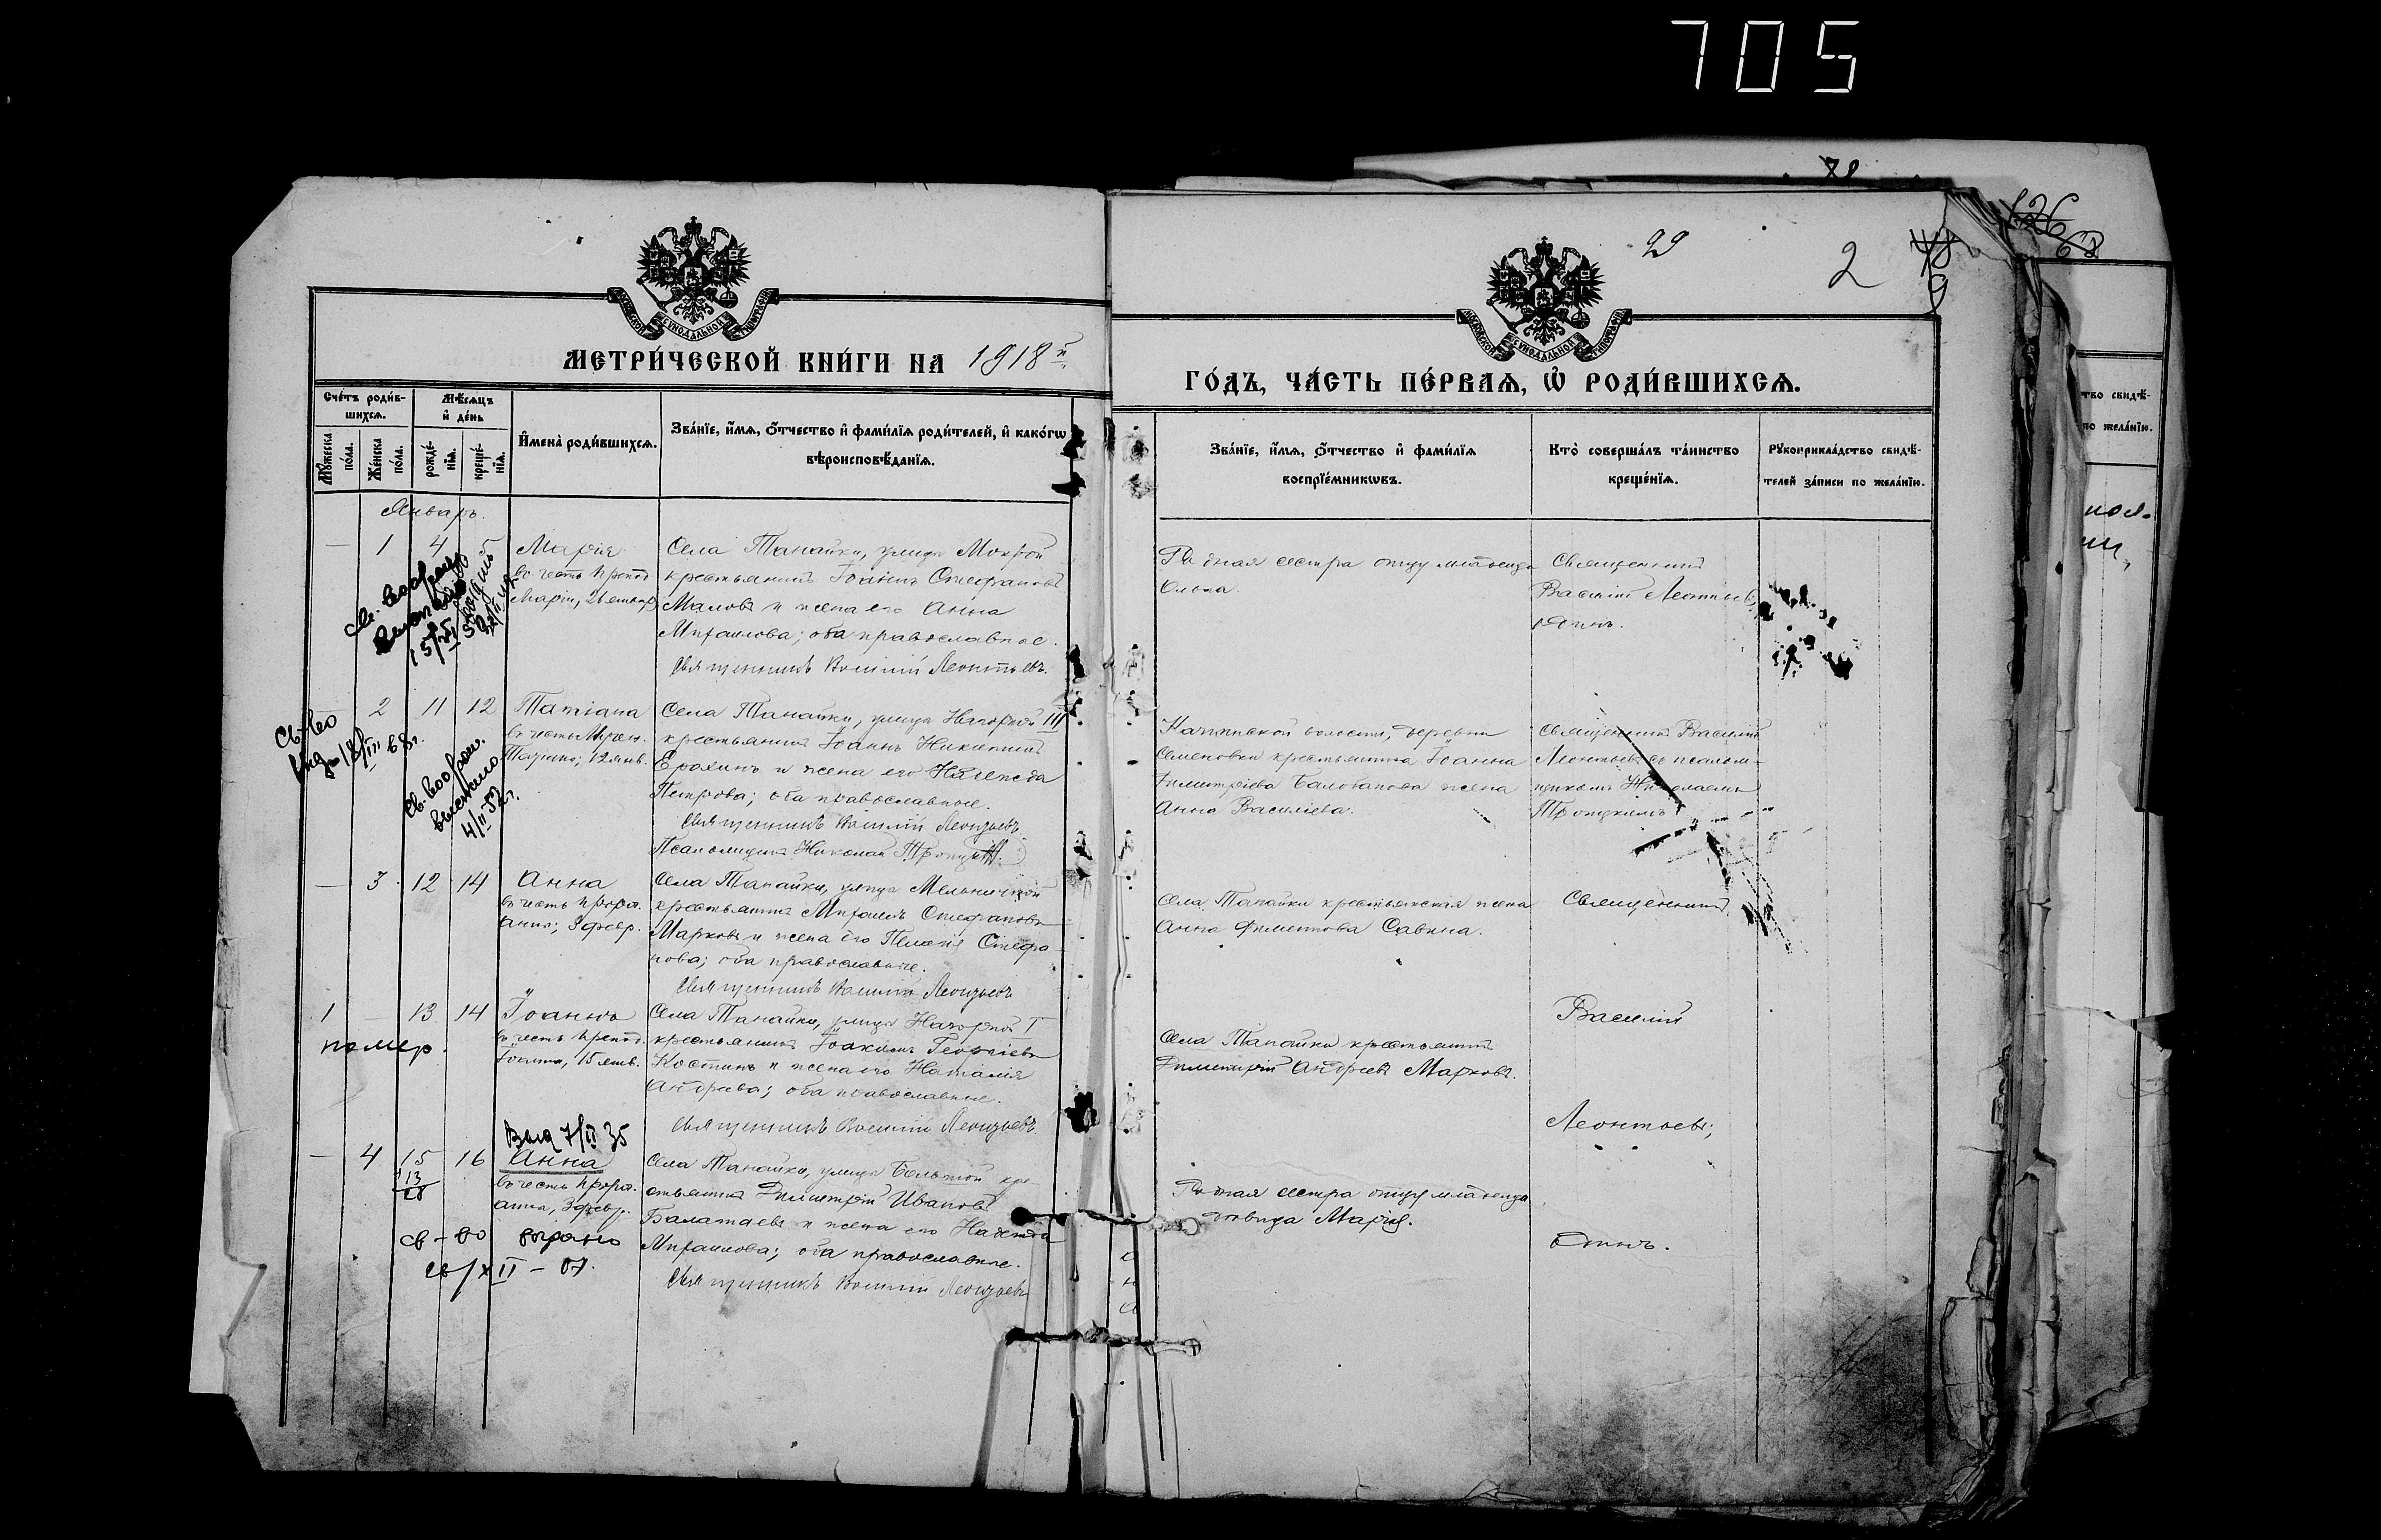 705
78
126
68
29
2
48
9
МОСКОВСКОЙ СѴНОДАЛЬНОЙ ТИПОГРАФІИ
МОСКОВСКОЙ СѴНОДАЛЬНОЙ ТИПОГРАФІИ
МЕТРИ́ЧЕСКОЙ КНИ́ГИ НА 1918 й.
ГО́ДЪ, ЧА́СТЬ ПЕ́РВАѦ, Ѡ҆ РОДИ́ВШИХСѦ.
Сче́тъ роди́в-
шихсѧ.
Мꙋ́жеска по́ла.
Же́нска по́ла.
Мѣ́сѧцъ
и҆ де́нь
рожде́-
нїѧ.
креще́-
нїѧ.
И҆мена̀ роди́вшихсѧ.
Зва́нїе, и҆́мѧ, ѻ҆́тчество и҆ фами́лїѧ роди́телей, и҆ како́гѡ
вѣроисповѣ́данїѧ.
Зва́нїе, и҆́мѧ, ѻ҆́тчество и҆ фами́лїѧ
воспрїе́мникѡвъ.
Кто̀ соверша́лъ та́инство
креще́нїѧ.
Рꙋкоприкла́дство свидѣ́-
телей за́писи по жела́нїю.
Январь.
— 1 4 5
Марія
въ честь препод.
Маріи, 26 январ.
Села Танайки, улицы Мокрой
крестьянинъ Іоаннъ Стефановъ
Маловъ и жена его Анна
Михаилова; оба православные.
Священникъ Василій Леонтьевъ.
Родная сестра отцу младенца
Ольга.
Священникъ
Василій Леонтьев,
одинъ.
2 11 12
Татіана
въ честь Мучен.
Татіаны, 12 янв.
Села Танайки, улицы Нагорной III
крестьянинъ Іоаннъ Никитинъ
Ерахинъ и жена его Надежда
Петрова; оба православные.
Священникъ Василій Леонтьевъ.
Псаломщикъ Николай
волости, деревни
Семеновки крестьянина Іоанна
Димитріева Балобанова жена
Анна Василіева.
Священникъ Василій
Леонтьевъ съ псалом-
щикомъ Николаемъ
Св-во
выд. 18/III 68г.
Св. возвращ.
выслано
4/II 52г.
— 3 12 14
Анна
въ честь прор.
Анны, 3 февр.
Села Танайки, улицы Мельничной
крестьянинъ Михаилъ Стефановъ
Марковъ и жена его Пелагія Стефа-
нова; оба православные.
Священникъ Василій Леонтьевъ
Села Танайки крестьянская жена
Анна Филиппова Савина.
Священникъ
1 — 13 14
Іоаннъ
въ честь препод.
Іоанна, 15 янв.
помер.
Села Танайки, улицы Нагорной I
крестьянинъ Іоакимъ Георгіевъ
Костинъ и жена его Наталія
Андреева; оба православные.
Священникъ Василій Леонтьевъ
Села Танайки крестьянинъ
Димитрій Андреевъ Марковъ.
Василій
Леонтьевъ,
Выд 7/II 35
— 4 15 16
13
28
Анна
въ честь прор.
Анны, 3 февр.
Села Танайки, улицы Большой кре-
стьянинъ Димитрій Ивановъ
Балатаевъ и жена его Надежда
Михаилова; оба православные.
Священникъ Василій Леонтьевъ
Родная сестра отцу младенца
девица Марія.
одинъ.
св-во выдано